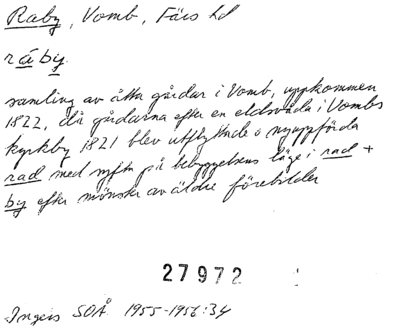 Raby, Vomb, Färs hd
råby.
samling av åtta gårdar i Vomb, uppkommen
1822, då gårdarna efter en eldsvåda i Vombs
kyrkby 1821 blev utflyttade o nyuppförda
rad med syfte på bebyggelsens läge i rad +
by efter mönster av äldre förebilder
27972
Ingers SOÅ 1955-1956:34